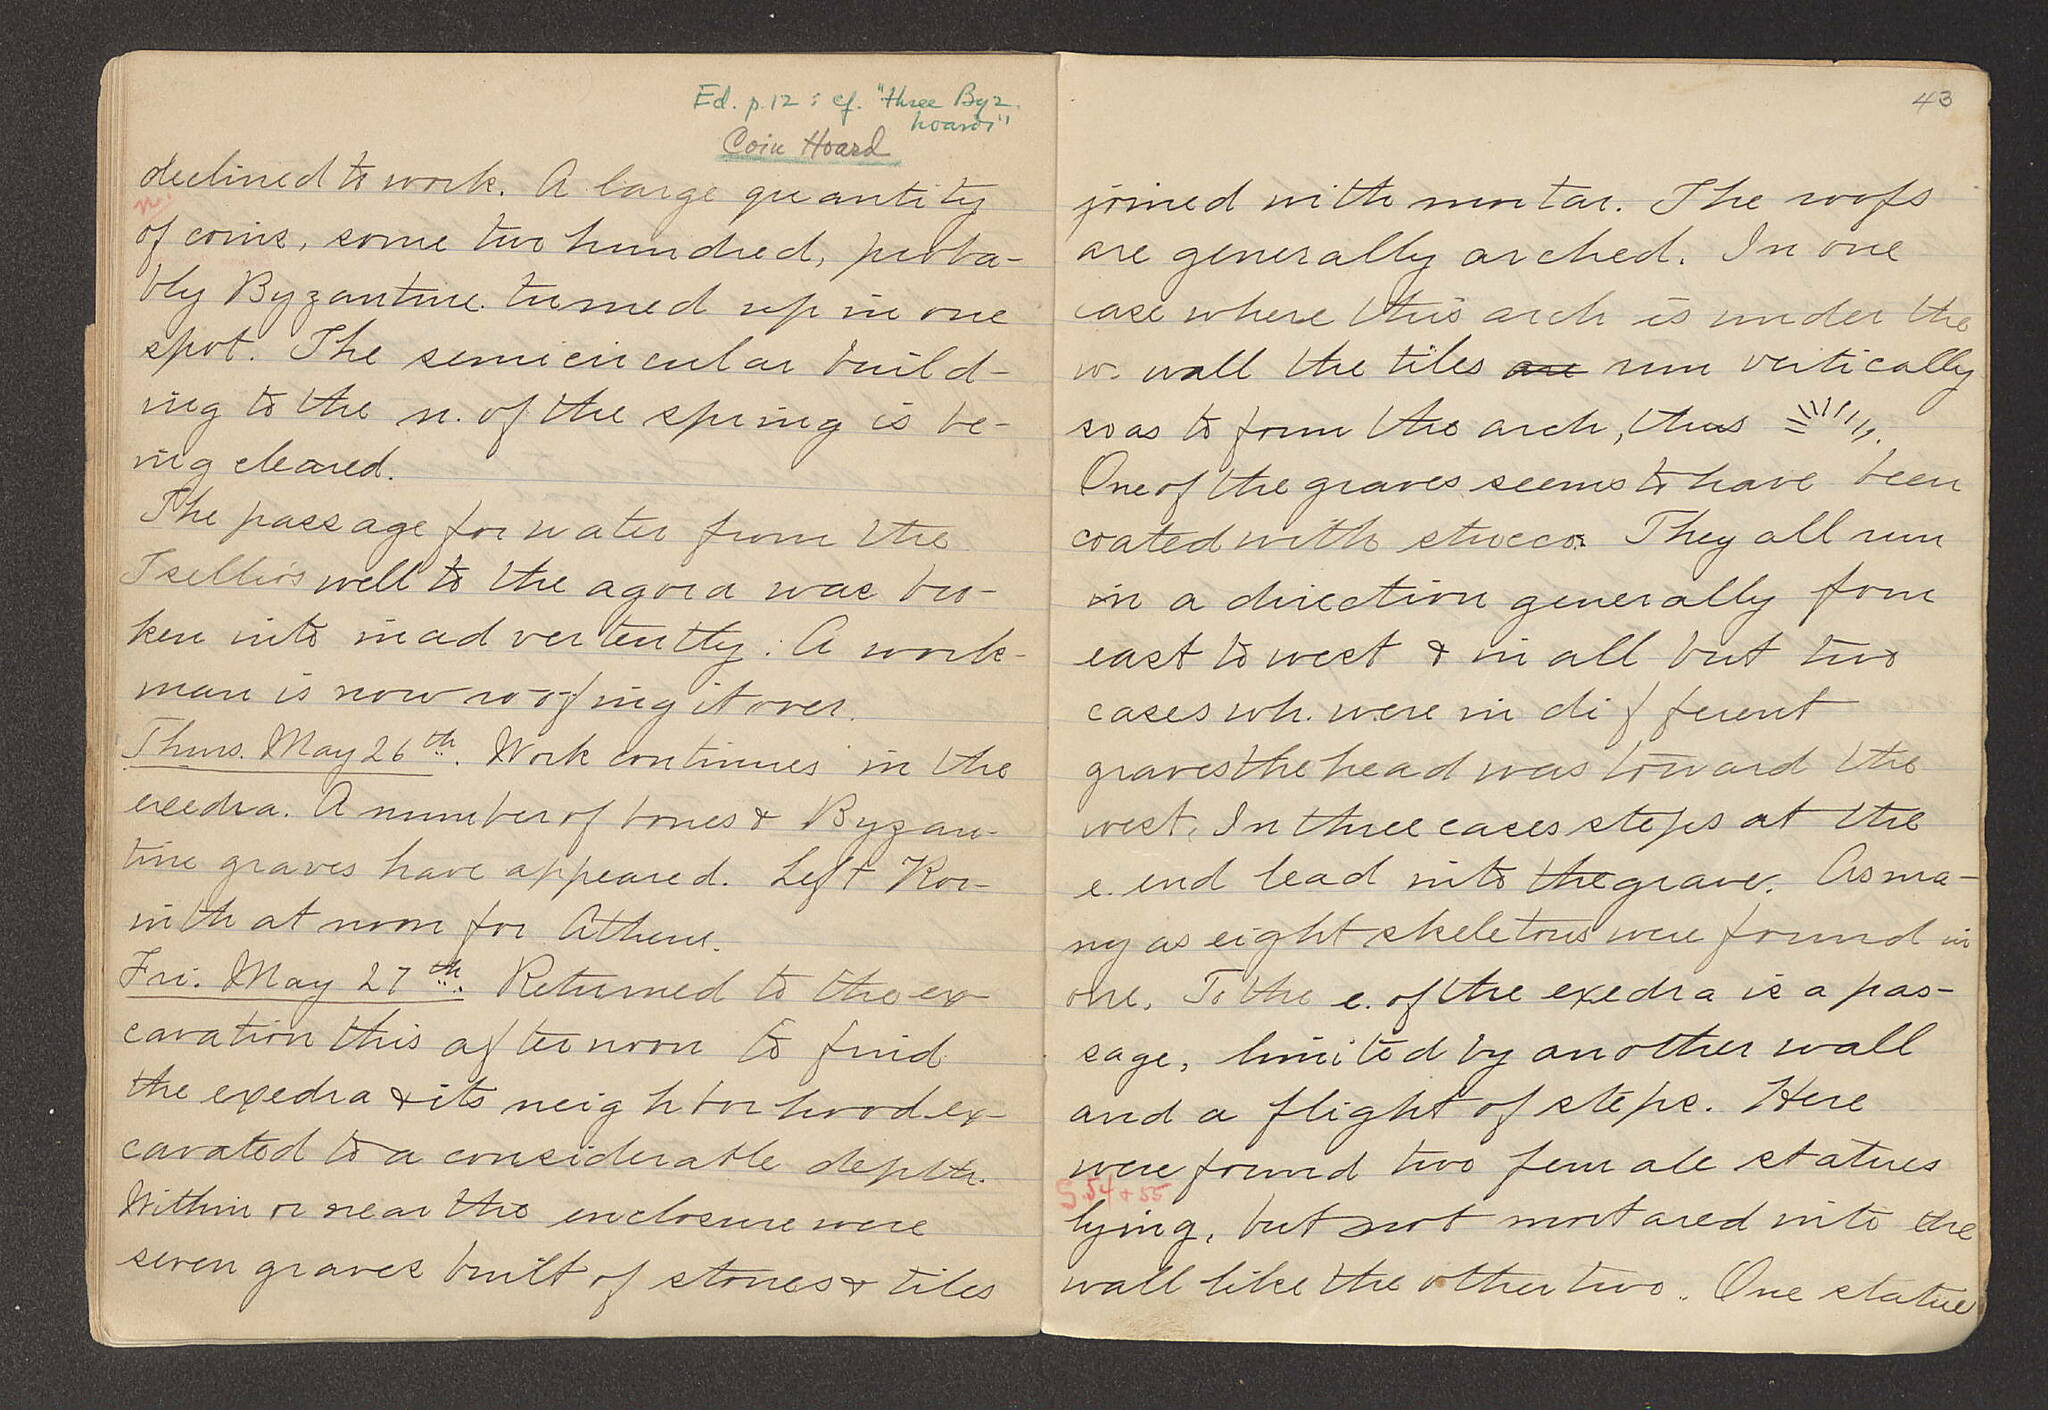 Ed. p.12 : cf. "three Byz.
hoards"
Coin Hoard
declined to work. A large quantity
n.
of coins, some two hundred, proba-
bly Byzantine turned up in one
spot. The semicircular build-
ing to the n. of the spring is be-
ing cleared.
The passage for water from the
Tsellios well to the agora was bro-
ken into inadvertently. A work-
man is now roofing it over.
Thurs. May 26th. Work continues in the
exedra. A number of bones & Byzan-
tine graves have appeared. Left Kor-
inth at noon for Athens.
Fri. May 27th. Returned to the ex-
cavation this afternoon to find
the exedra & its neighborhood ex-
cavated to a considerable depth.
Within or near the enclosure were
seven graves built of stones & tiles
43
joined with mortar. The roofs
are generally arched. In one
case where this arch is under the
w. wall the tiles are run vertically
so as to form the arch, thus
One of the graves seems to have been
coated with stucco. They all run
in a direction generally from
east to west & in all but two
cases wh. were in different
graves the head was toward the
west. In three cases steps at the
e. end lead into the grave. As ma-
ny as eight skeletons were found in
one. To the e. of the exedra is a pas-
sage, limited by another wall
and a flight of steps. Here
were found two female statues
S.54 + 55
lying, but not mortared into the
wall like the other two. One statue